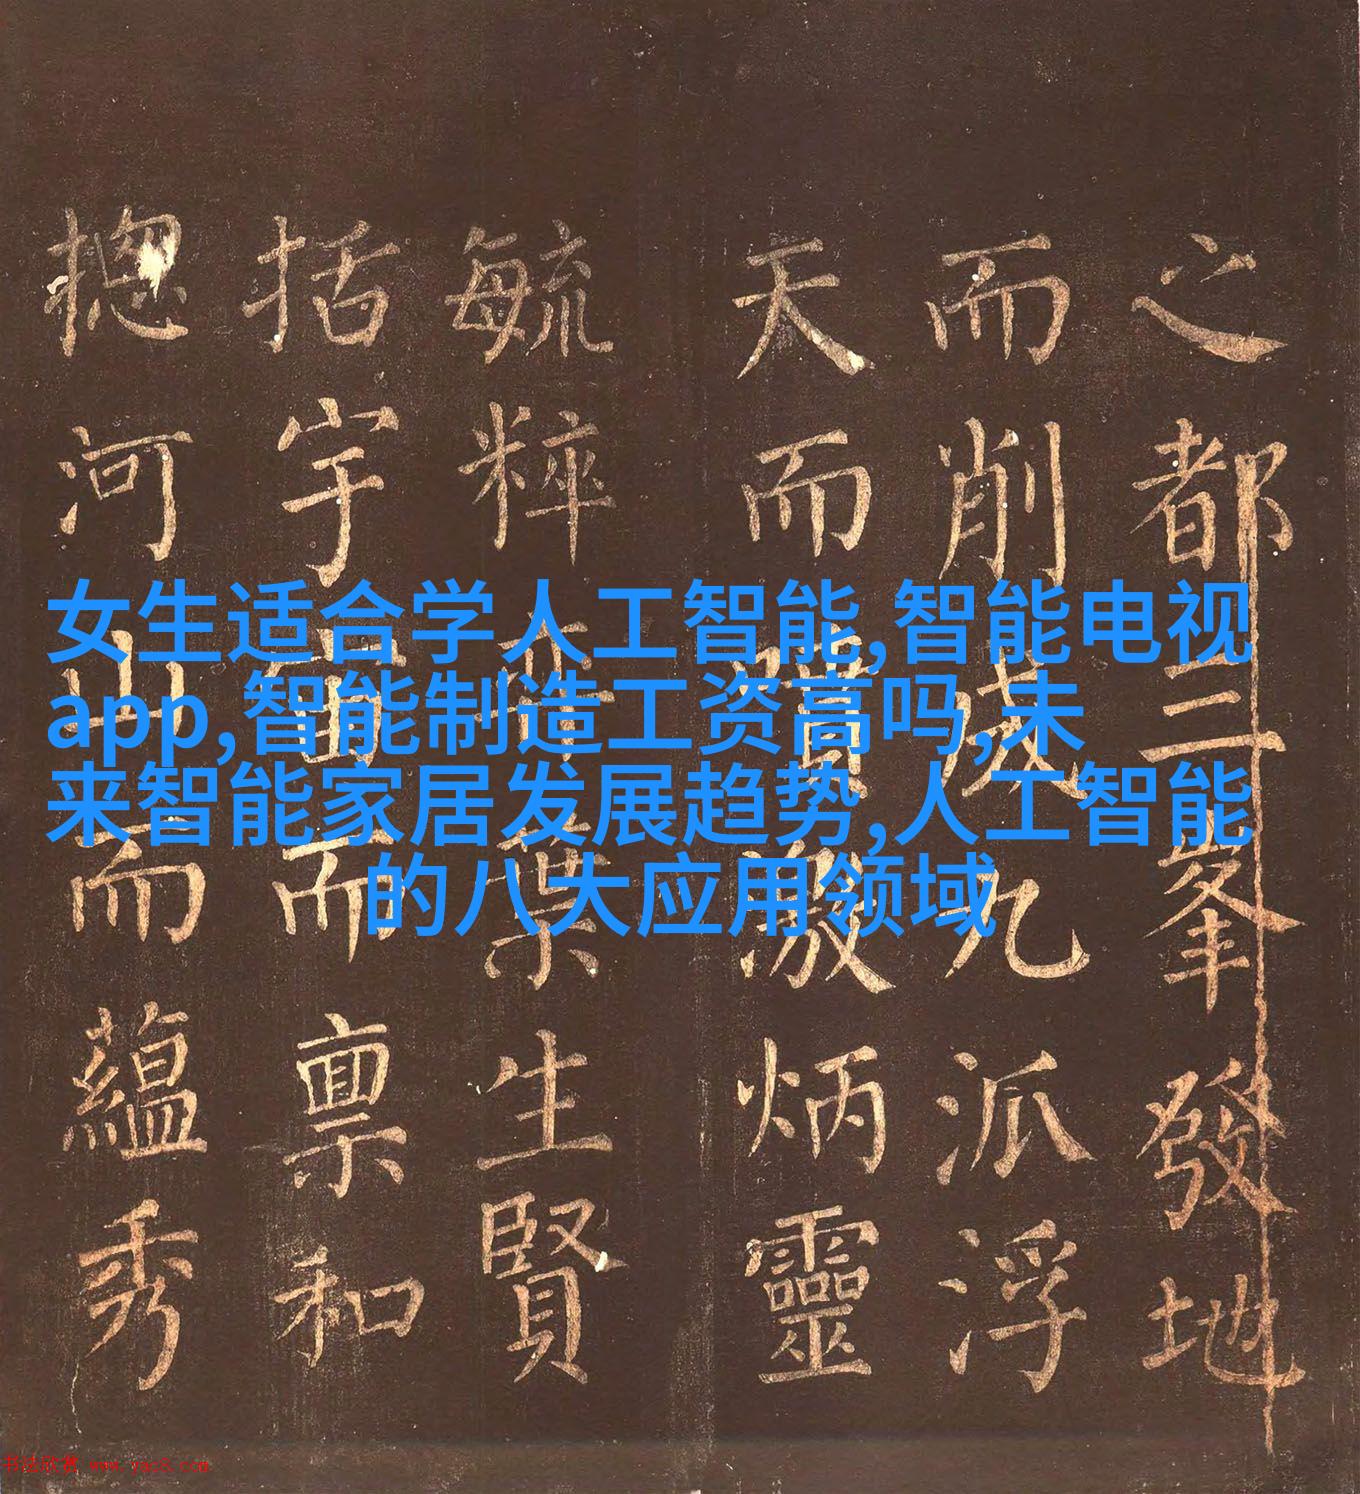 之都三峯發地
而削成九派浮
天而噴激炳靈
毓粹弈葉生賢
括宇宙而禀和
揔河山而藴秀
女生适合学人工智能,智能电视
app,智能制造工资高吗,未
来智能家居发展趋势,人工智能
的八大应用领域
书法欣赏 www.yac8.com